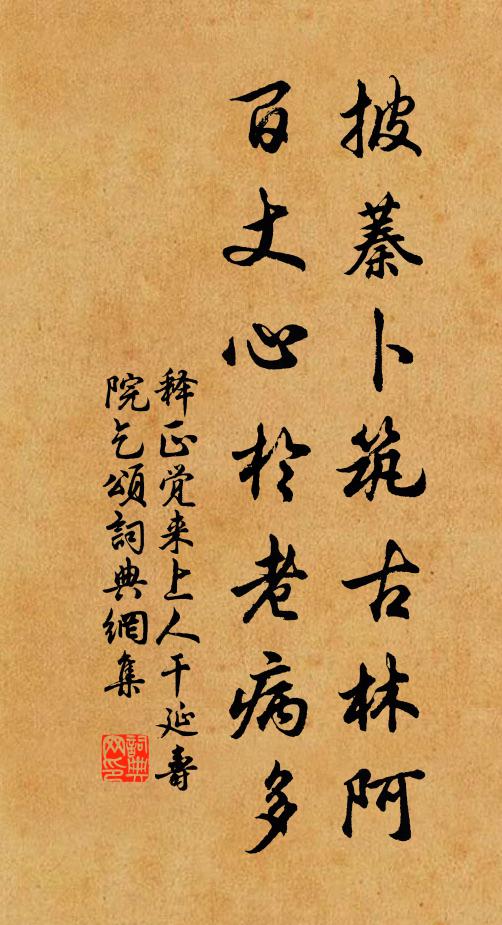 披蓁卜筑古林阿
百丈心於老病多
释正觉来上人干延壽
院乞頌詞典網集
詞典
网印